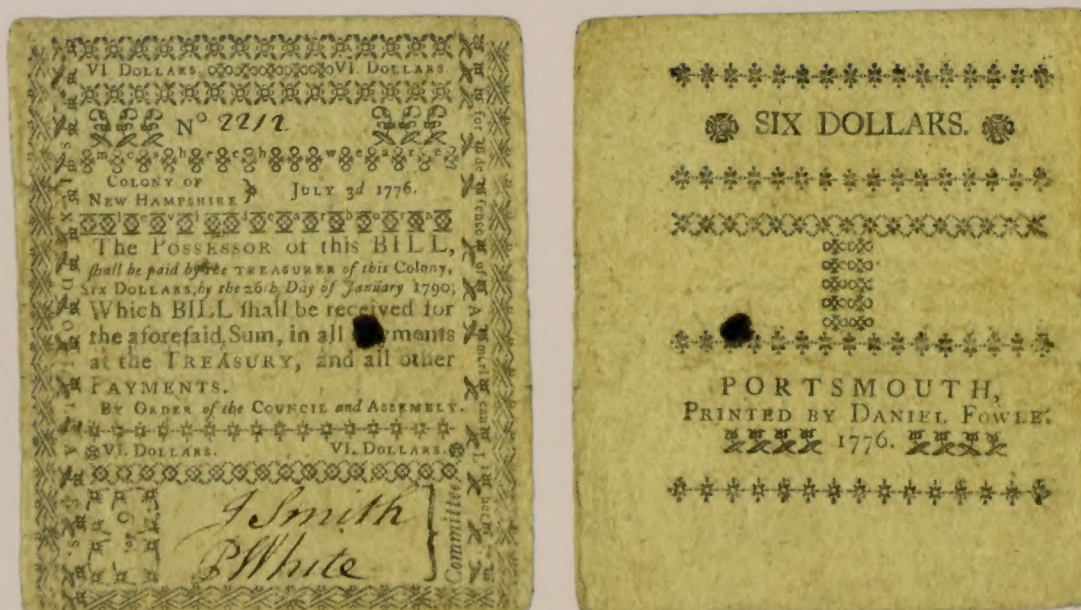 VI DOLLARS. VI. DOLLARS.
No 2212
COLONY OF
NEW HAMPSHIRE } JULY 3d 1776.
The POSSESSOR of this BILL,
ſhall be paid by the TREASURER of this Colony,
SIX DOLLARS, by the 26th Day of January 1790;
Which BILL ſhall be received for
the aforeſaid Sum, in all Payments
at the TREASURY, and all other
PAYMENTS.
BY ORDER of the COUNCIL and ASSEMBLY.
VI. DOLLARS. VI. DOLLARS.
J Smith
P White
} Committee.
SIX DOLLARS.
PORTSMOUTH,
PRINTED BY DANIEL FOWLE.
1776.